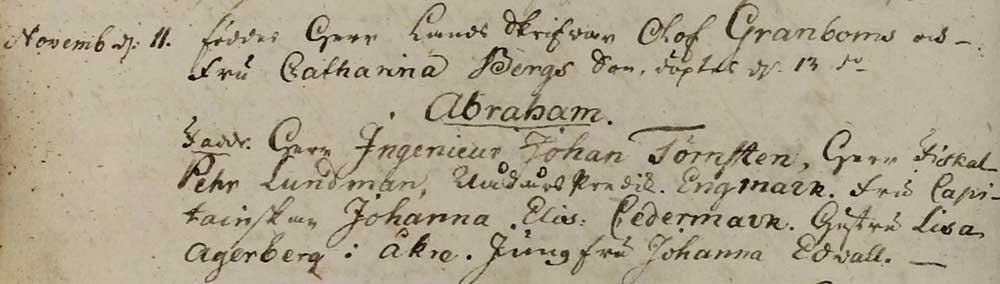 Novemb d: 11. föddes Herr Lands Skrifvar Olof Granboms och
Fru Catharina Bergs Son, döptes d. 13 do
Abraham.
Fadd. Herr Ingenieur Johan Törnsten, Herr Fiskal
Pehr Lundman, Predik. Engmark. Fru Capi-
tainskan Johanna Elis: Cedermark. Hustru Lisa
Agerberg i åkre. Jungfru Johanna Edvall. —